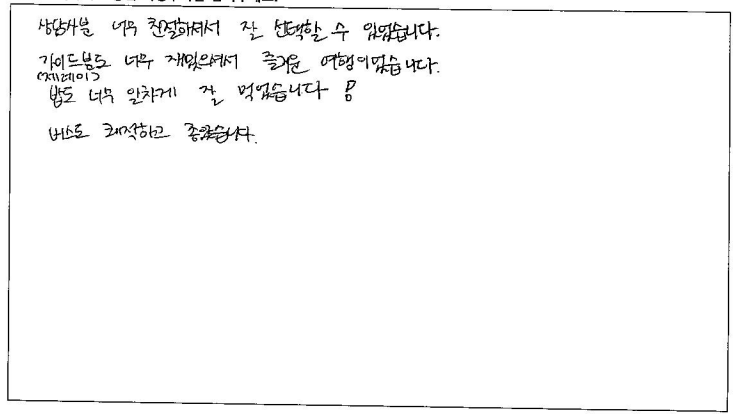 상담사분 너무 친절하셔서 잘 선택할 수 있었습니다.
가이드분도 너무 재밌으셔서 즐거운 여행이었습니다.
(제레이)
밥도 너무 알차게 잘 먹었습니다!
버스도 쾌적하고 좋았습니다.